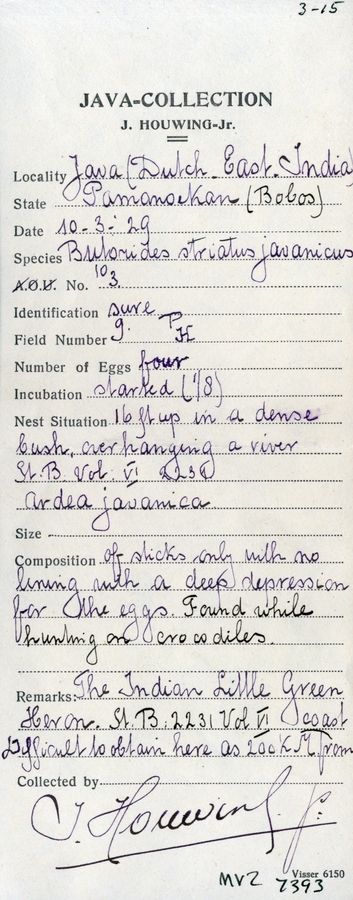 3-15
JAVA-COLLECTION
J. HOUWING-Jr.
Locality Java (Dutch. East. India)
State Pamanoekan (Bobos)
Date 10-3-'29
Species Butorides striatus javanicus
A.O.U. No. 103
Identification sure
Field Number 9. P/H
Number of Eggs four
Incubation started (1/8)
Nest Situation 16 ft up in a dense
bush, overhanging a river
St. B. Vol. VI 2231
ardea javanica
Size
Composition of sticks only with no
lining with a deep depression
for the eggs. Found while
hunting on crocodiles.
Remarks: The Indian Little Green
Heron. St. B: 2231 Vol VI coast
Difficult to obtain here as 200 K.M from
Collected by
J. Houwing. Jr.
Visser 6150
MVZ 7393